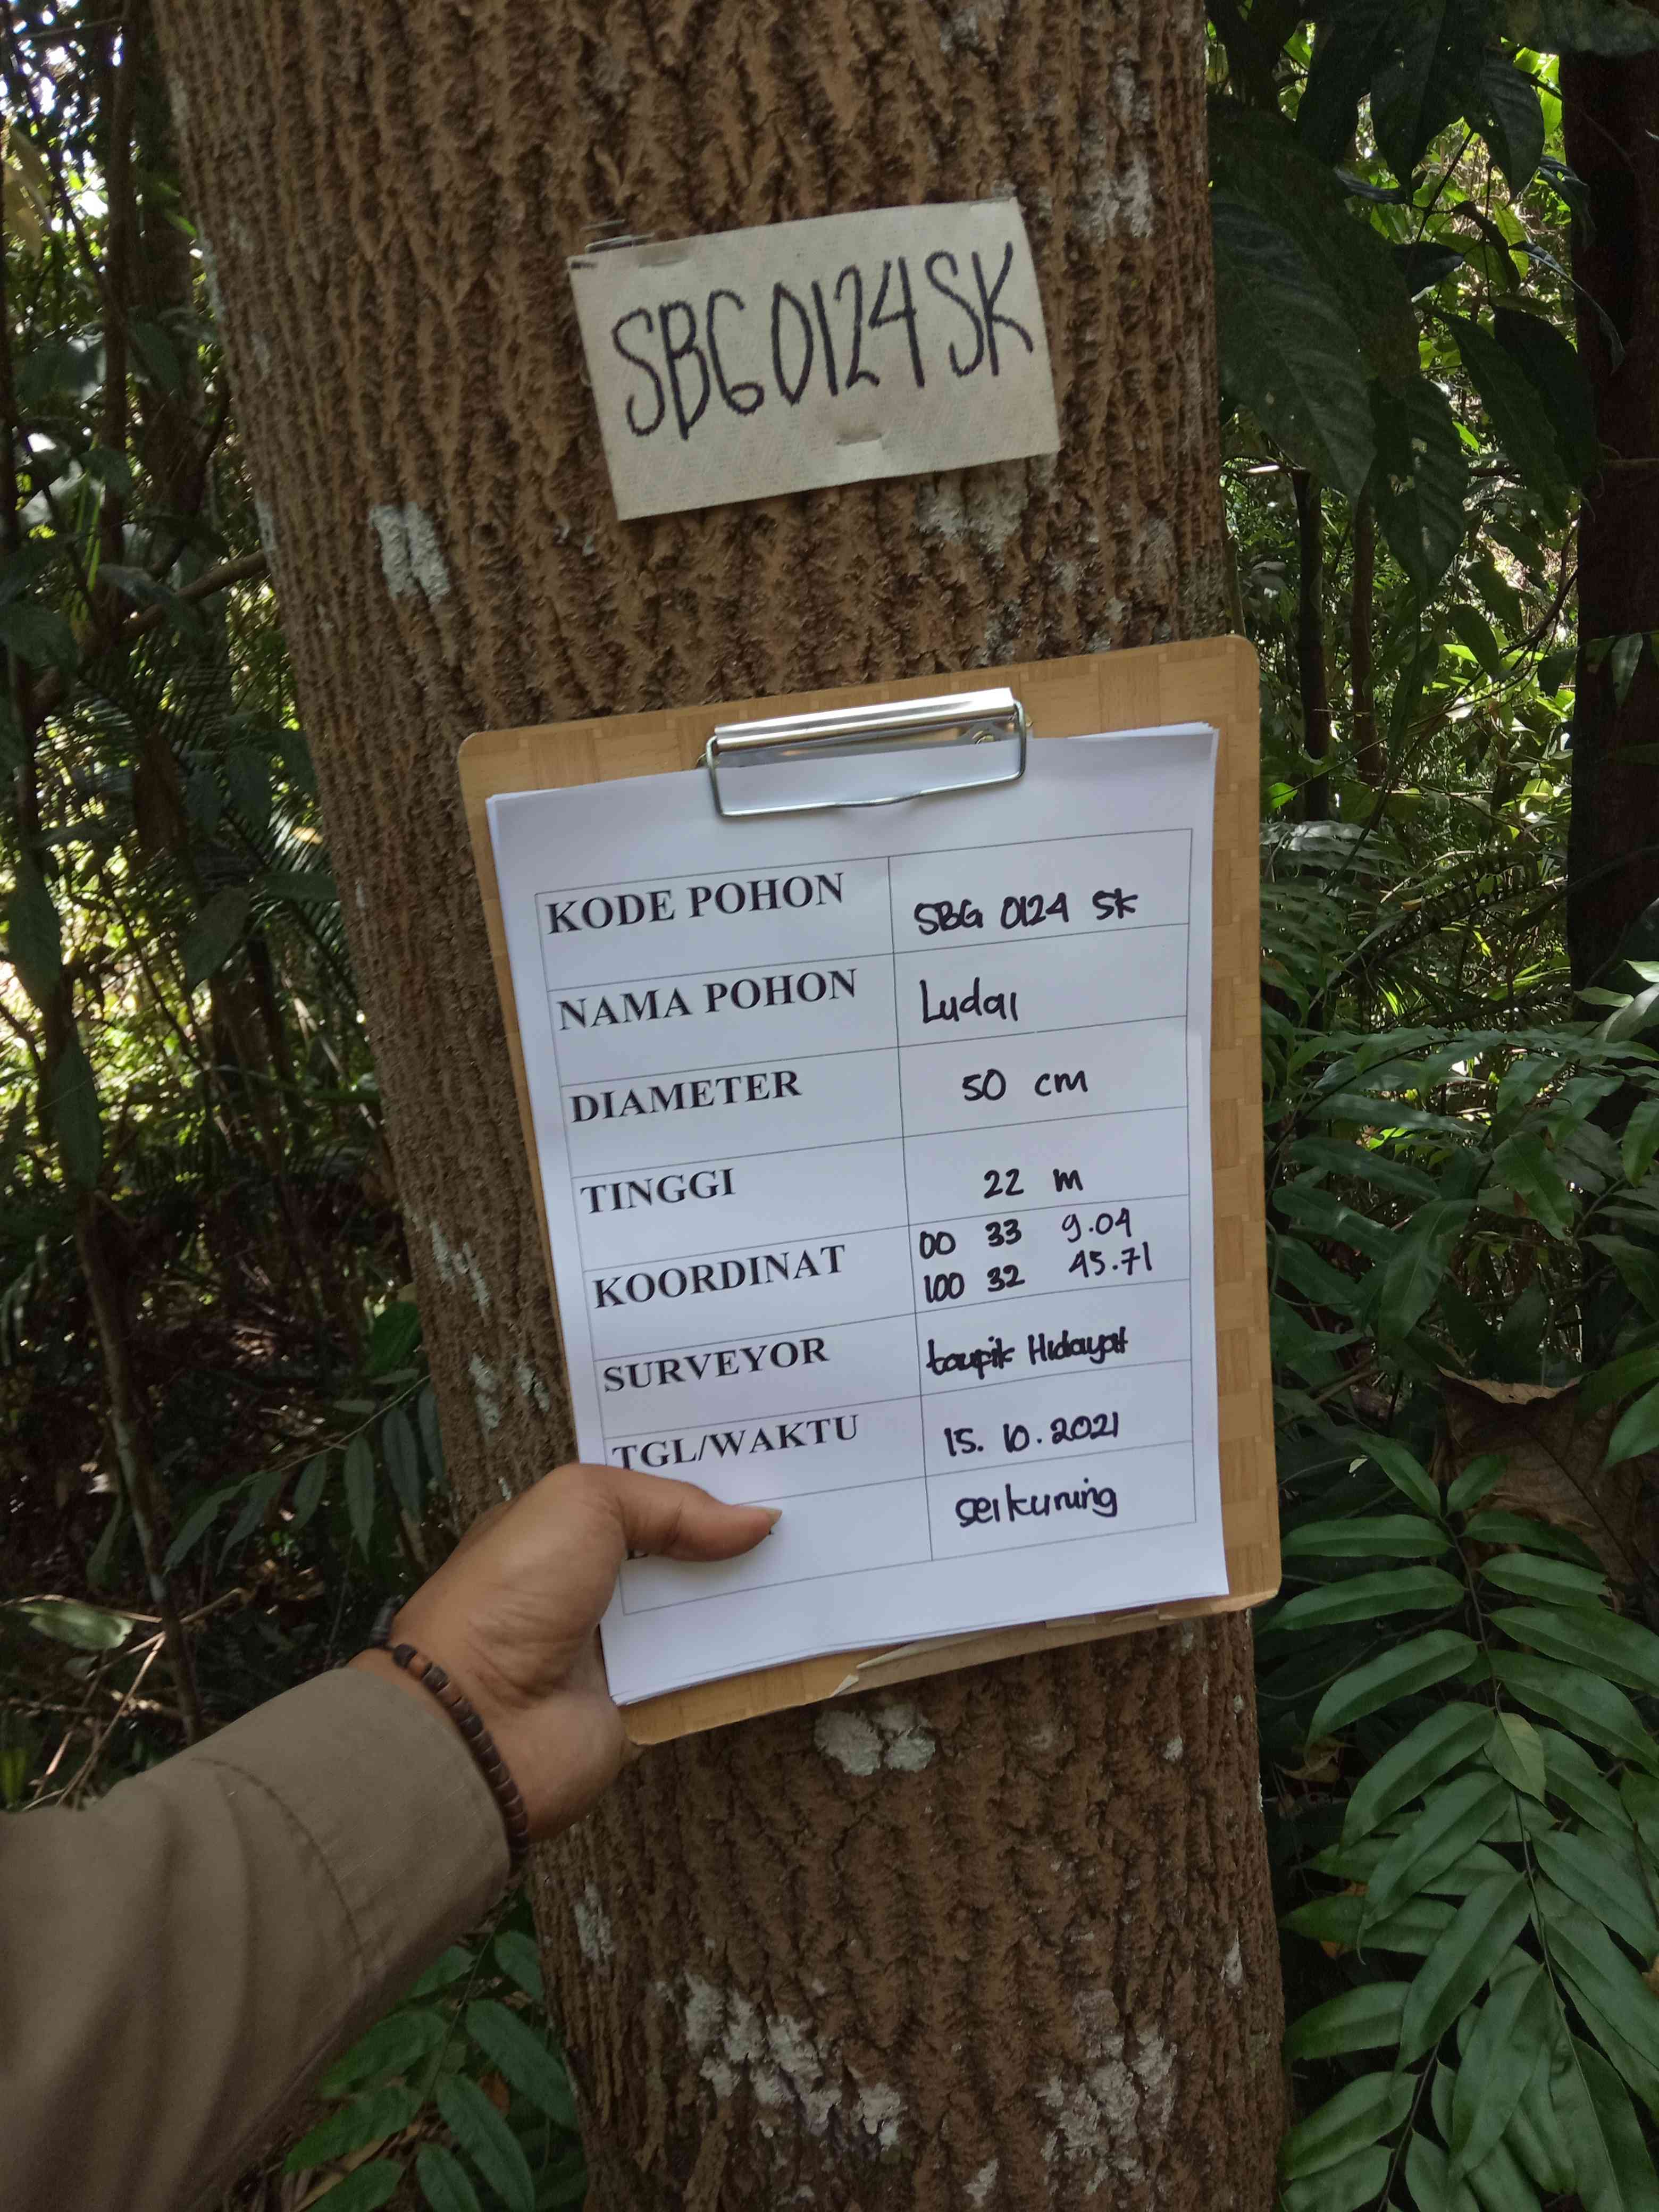 SBG 0124 SK
KODE POHON SBG 0124 SK
NAMA POHON Ludai
DIAMETER 50 cm
TINGGI 22 m
KOORDINAT 00 33 9.04
100 32 45.71
SURVEYOR taupik Hidayat
TGL/WAKTU 15. 10. 2021
seikuning